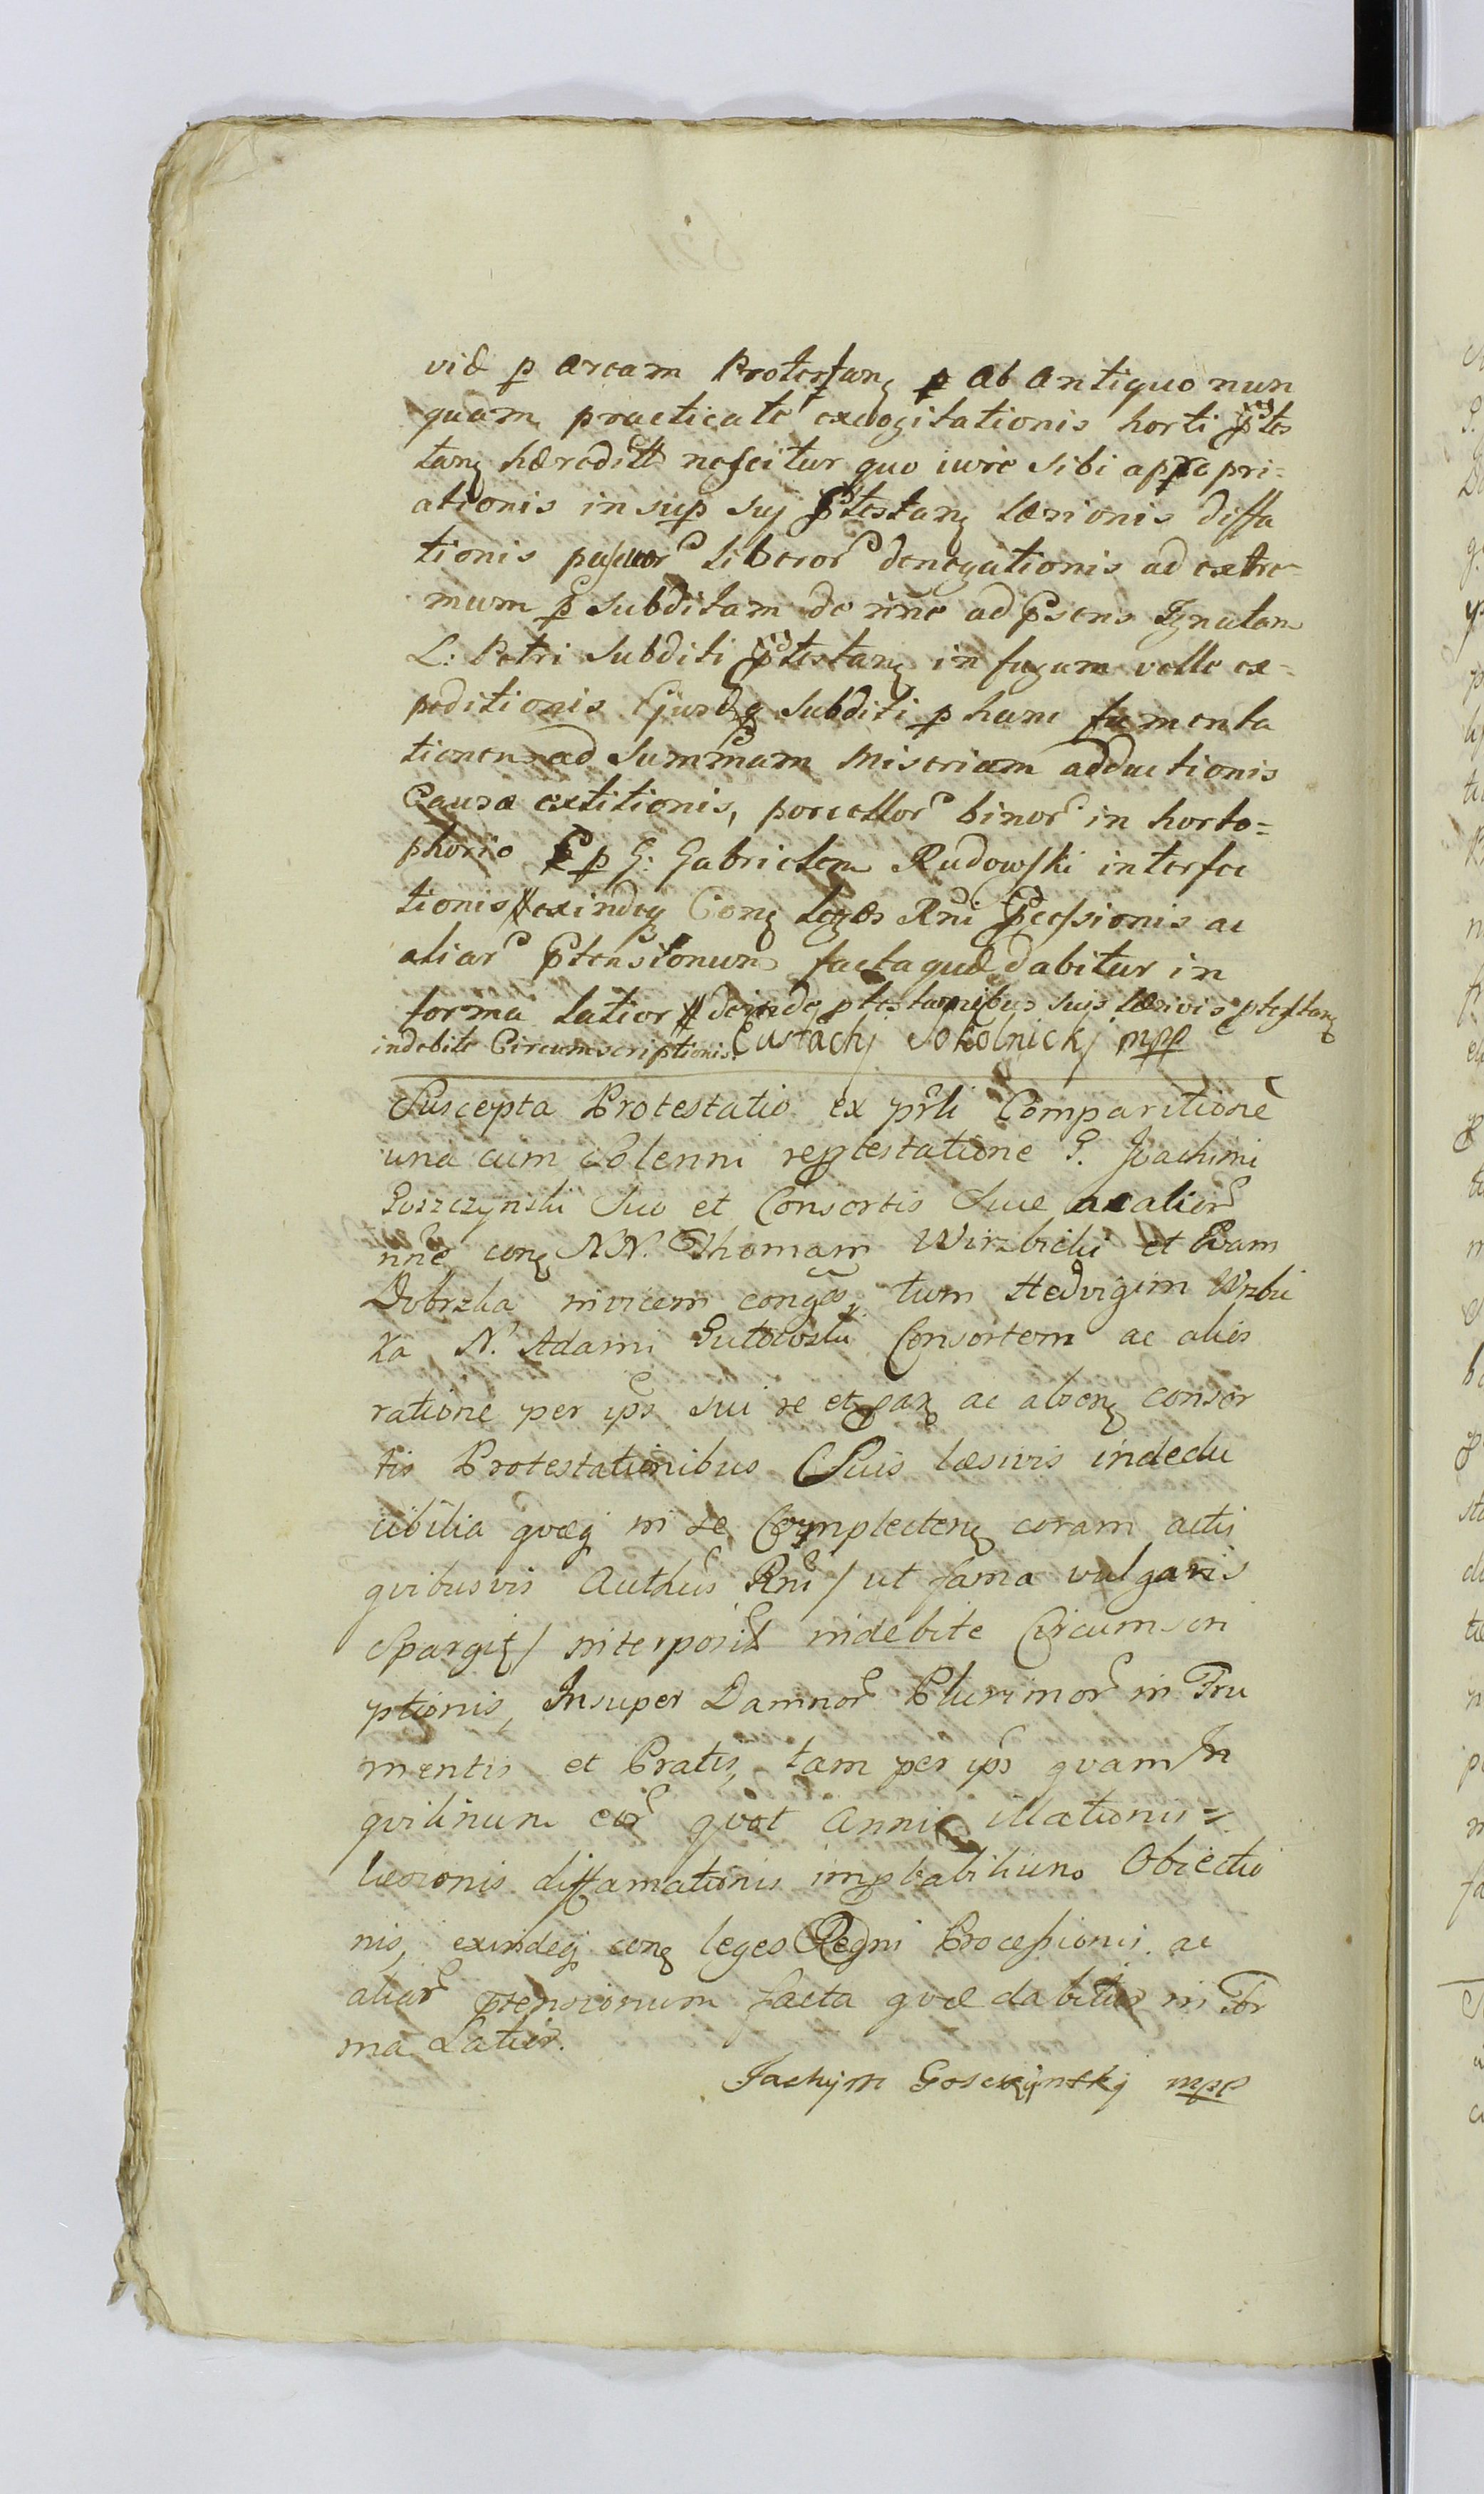 viæ p aream Protestanͨ p ab antiquo nun
quam practicatæ excogitationis horti ptes
tanͨ hæreditt nescitur quo iure sibi appropri=
ationis insup suj ptestanͨ læsionis diffa
tionis pascuor liberor denegationis ad extre=
mum p subditam de nne ad psens Ignatam
L: Petri Subditi ptestanͨ in fugam velle ex=
peditionis Ejusdq Subditi p hanc fumenta
tionem ad Summam Miseriam adductionis
Causæ extitionis, porcellor binor in horto=
phorio p G: Gabrielem Rudowski interfec
tionis // exindeq Conͨ leges Rni Pcessionis ac
aliar Ptensionum facta quæ dabitur in
forma latior // deinde ptestaonibus suis læsivis ptestanͨ
indebite Circumscriptionis. Eustachj Sokolnickj mpp
Suscepta Protestatio ex prli Comparitione
una cum Solenni reptestatione G. Joachimi
Goszczynski Suo et Consortis Suæ ac alior
nne conͨ NN. Thomam Wirzbicki et Evam
Dobrzka invicem congͨs, tum Hedvigim Wrzbic
ka N. Adami Gutowski Consortem ac alios
ratione per ips sui re et ac absenͨ consor
tis Protestationibus Suis læsivis indedu
cibilia quæq in se Complectenͨ coram actis
qvibusvis Authcis Rni / ut fama vulgaris
Spargit / interposit indebite Circumscri
ptionis, Insuper Damnor Plurimor in Fru
mentis et Pratis, tam per ips qvam In
qvilinum eor qvot annis illationis =
læsionis diffamationis impbabilium Obiectio
nis, exindeq conͨ leges Regni Processionis ac
aliar ptensionum facta qvæ dabitur in For
ma Latior.
Jachym Gosczynskj mpp